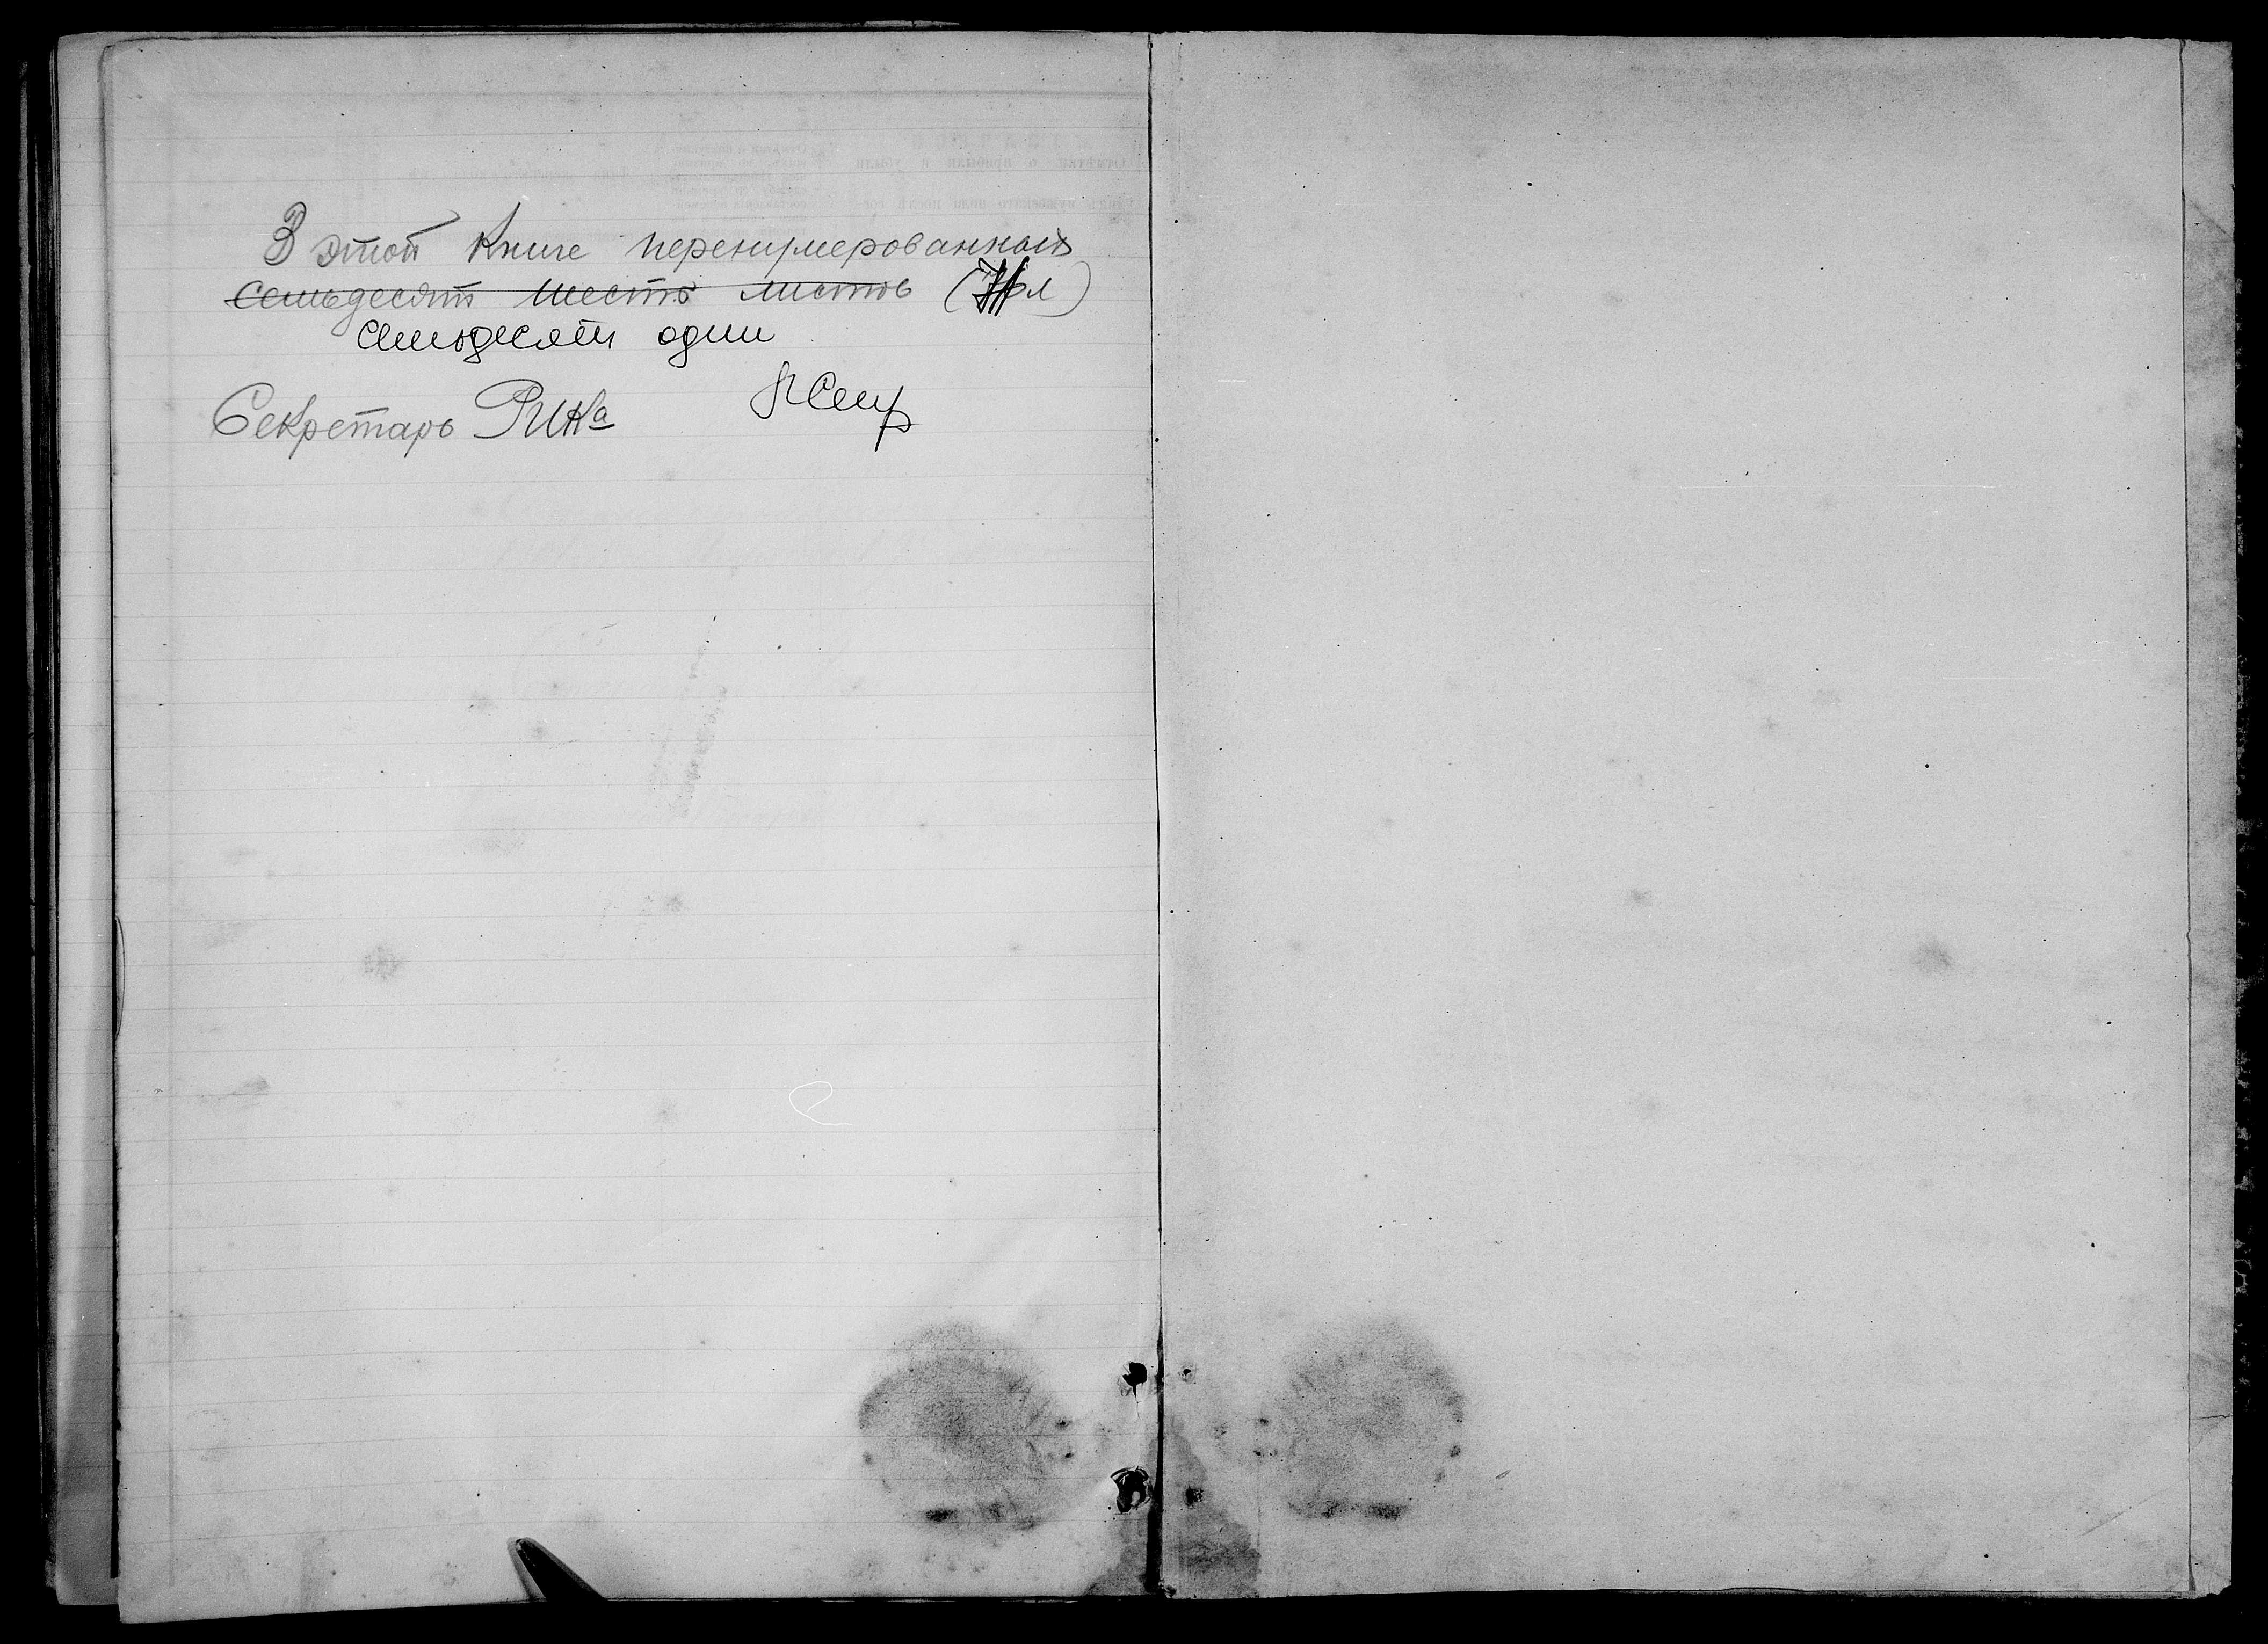 В этой книге перенумерованных
семьдесят шесть листов
семьдесят один
Секретарь РИКа